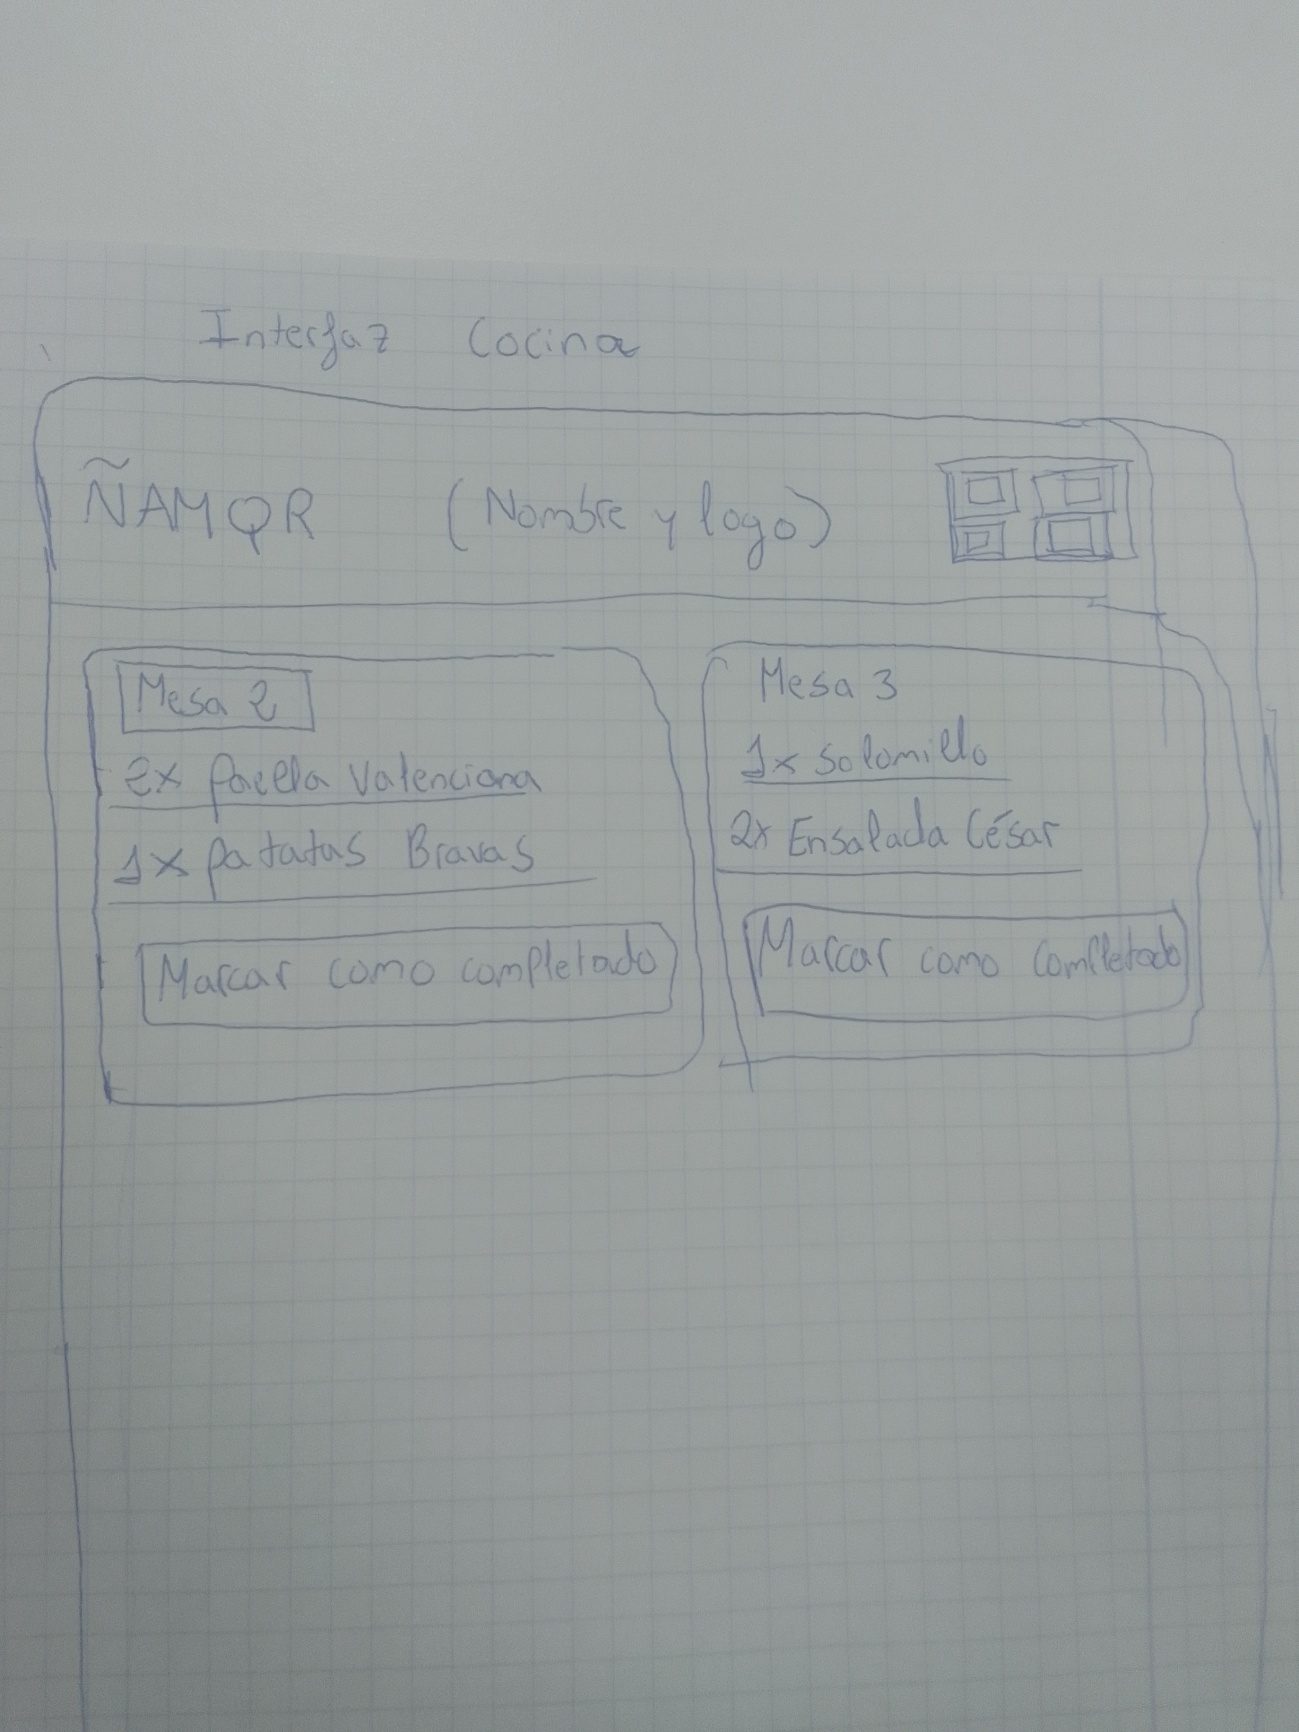 Interfaz Cocina
ÑAMQR (Nombre y logo)
Mesa 2
2x paella Valenciana
1x patatas Bravas
Marcar como completado
Mesa 3
1x solomillo
2x Ensalada César
Marcar como completado